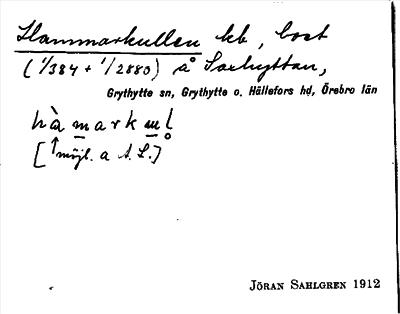 Hammarkullen kb, bost
(1/384 + 1/2880) å Saxhyttan,
Grythytte sn, Grythytte o. Hällefors hd, Örebro län
hàmarkul
[↑möjl. a A.L.]
JÖRAN SAHLGREN 1912